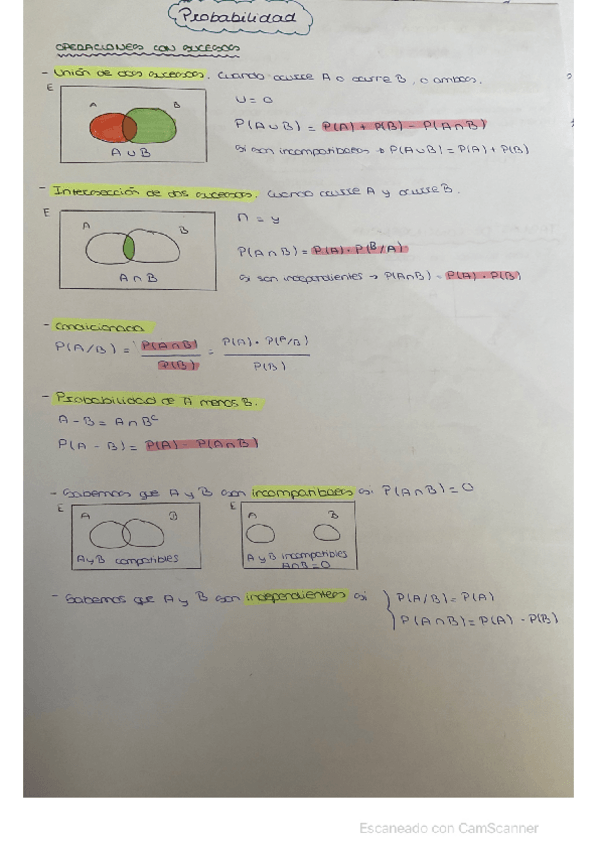 Probabilidad
OPERACIONES CON SUCESOS
- Unión de dos sucesos. Cuando ocurre A o ocurre B, o ambos.
E
A B
A ∪ B
U = O
P(A ∪ B) = P(A) + P(B) - P(A ∩ B)
Si son incompatibles → P(A ∪ B) = P(A) + P(B)
- Intersección de dos sucesos. Cuando ocurre A y ocurre B.
E
A B
A ∩ B
∩ = y
P(A ∩ B) = P(A) · P(B/A)
Si son independientes → P(A ∩ B) = P(A) · P(B)
- Condicionada
P(A/B) = P(A ∩ B) / P(B) = P(A) · P(B/B) / P(B)
- Probabilidad de A menos B.
A - B = A ∩ Bᶜ
P(A - B) = P(A) - P(A ∩ B)
- Sabemos que A y B son incompatibles si P(A ∩ B) = 0
E
A B
A y B compatibles
E
A B
A y B incompatibles
A ∩ B = 0
- Sabemos que A y B son independientes si
P(A/B) = P(A)
P(A ∩ B) = P(A) · P(B)
Escaneado con CamScanner